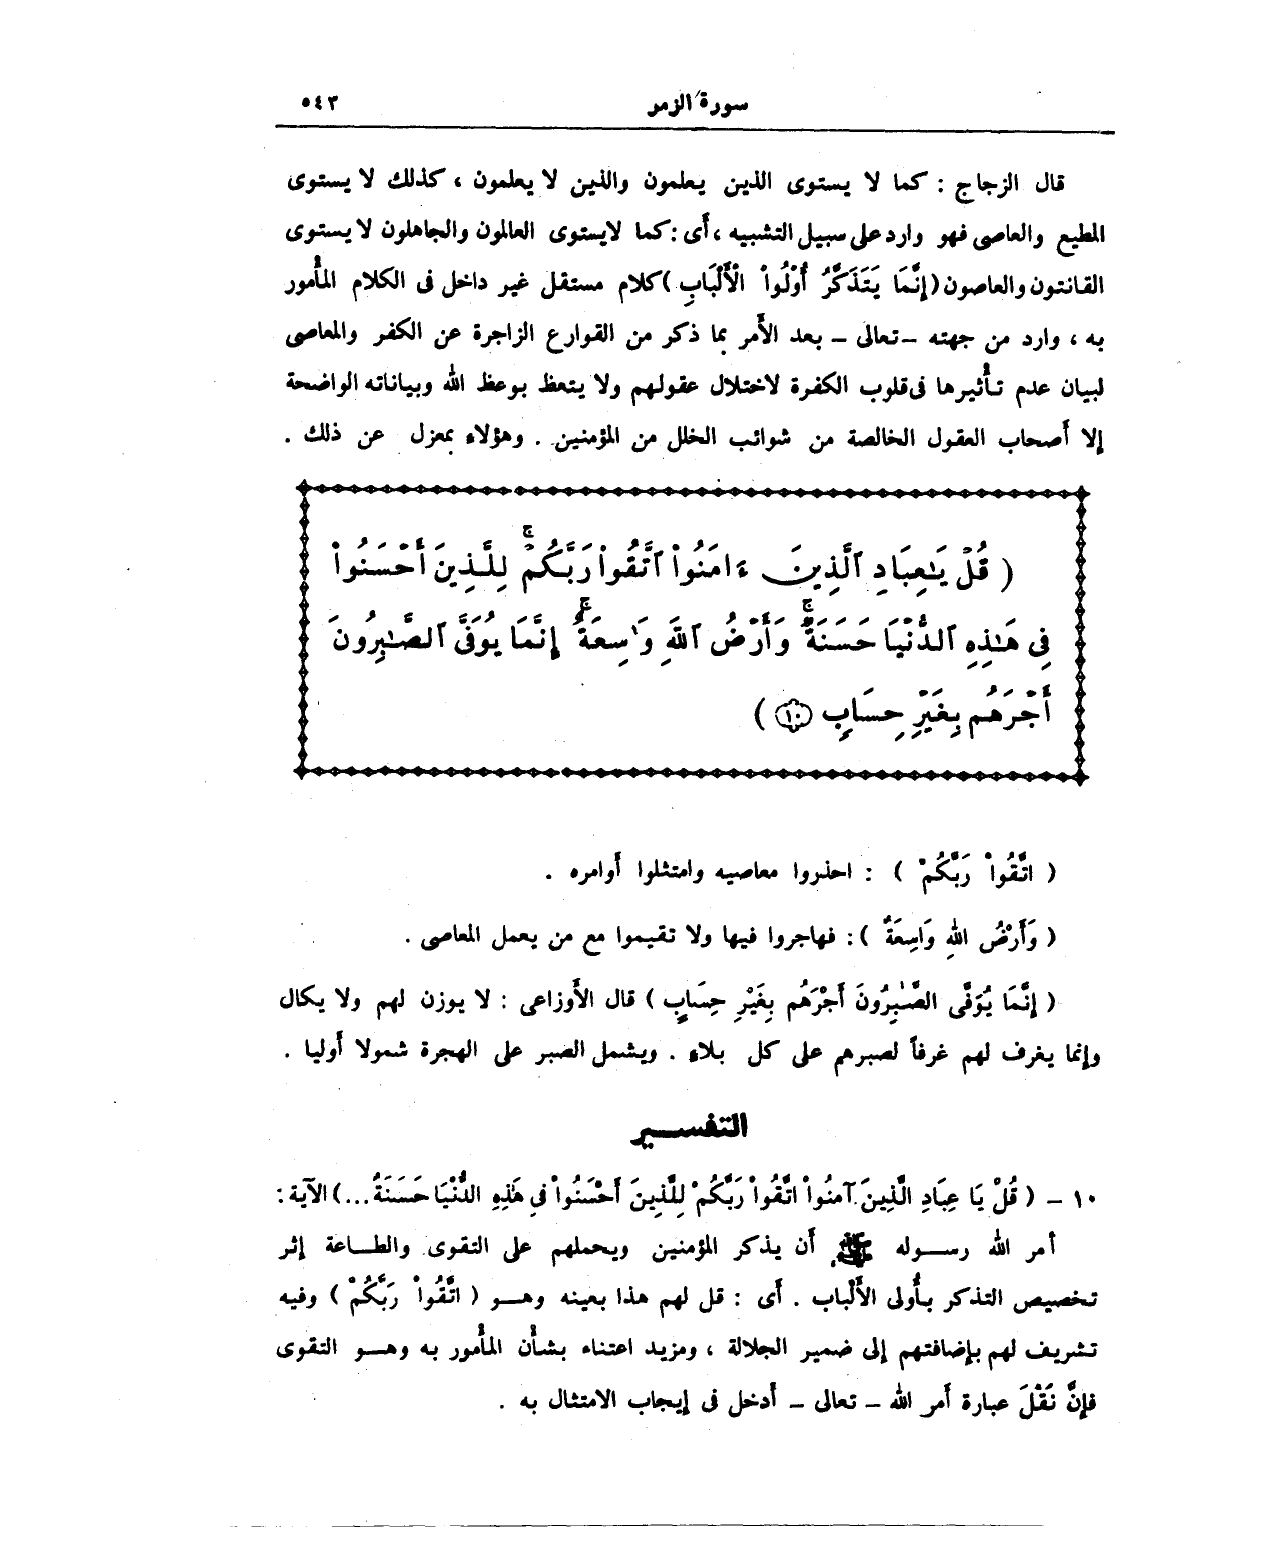 سورة الزمر ٥٤٣
قال الزجاج : كما لا يستوى الذين يعلمون والذين لا يعلمون ، كذلك لا يستوى
المطيع والعاصى فهو وارد على سبيل التشبيه ، أى : كما لايستوى العالمون والجاهلون لا يستوى
القانتون والعاصون (إِنَّمَا يَتَذَكَّرُ أُوْلُواْ الْأَلْبَابِ) كلام مستقل غير داخل فى الكلام المأمور
به ، وارد من جهته – تعالى – بعد الأمر بما ذكر من القوارع الزاجرة عن الكفر والمعاصى
لبيان عدم تأثيرها فى قلوب الكفرة لاختلال عقولهم ولا يتعظ بوعظ الله وبياناته الواضحة
إلا أصحاب العقول الخالصة من شوائب الخلل من المؤمنين . وهؤلاء بمعزل عن ذلك .
( قُلْ يَٰعِبَادِ ٱلَّذِينَ ءَامَنُواْ ٱتَّقُواْ رَبَّكُمْ ۚ لِلَّذِينَ أَحْسَنُواْ
فِى هَٰذِهِ ٱلدُّنْيَا حَسَنَةٌ ۗ وَأَرْضُ ٱللَّهِ وَٰسِعَةٌ ۗ إِنَّمَا يُوَفَّى ٱلصَّٰبِرُونَ
أَجْرَهُم بِغَيْرِ حِسَابٍ ١٠ )
( اتَّقُواْ رَبَّكُمْ ) : احذروا معاصيه وامتثلوا أوامره .
( وَأَرْضُ اللهِ وَاسِعَةٌ ) : فهاجروا فيها ولا تقيموا مع من يعمل المعاصى .
( إِنَّمَا يُوَفَّى الصَّٰبِرُونَ أَجْرَهُم بِغَيْرِ حِسَابٍ ) قال الأوزاعى : لا يوزن لهم ولا يكال
وإنما يغرف لهم غرفاً لصبرهم على كل بلاء . ويشمل الصبر على الهجرة شمولا أوليا .
التفسير
١٠ – ( قُلْ يَا عِبَادِ الَّذِينَ آمنُواْ اتَّقُواْ رَبَّكُمْ لِلَّذِينَ أَحْسَنُواْ فِى هَذِهِ الدُّنْيَا حَسَنَةٌ ... ) الآية :
أمر الله رسوله ﷺ أن يذكر المؤمنين ويحملهم على التقوى والطاعة إثر
تخصيص التذكر بأولى الأَلْباب . أى : قل لهم هذا بعينه وهو ( اتَّقُواْ رَبَّكُمْ ) وفيه
تشريف لهم بإضافتهم إلى ضمير الجلالة ، ومزيد اعتناء بشأن المأمور به وهو التقوى
فإنَّ نَقْلَ عبارة أمر الله – تعالى – أدخل فى إيجاب الامتثال به .